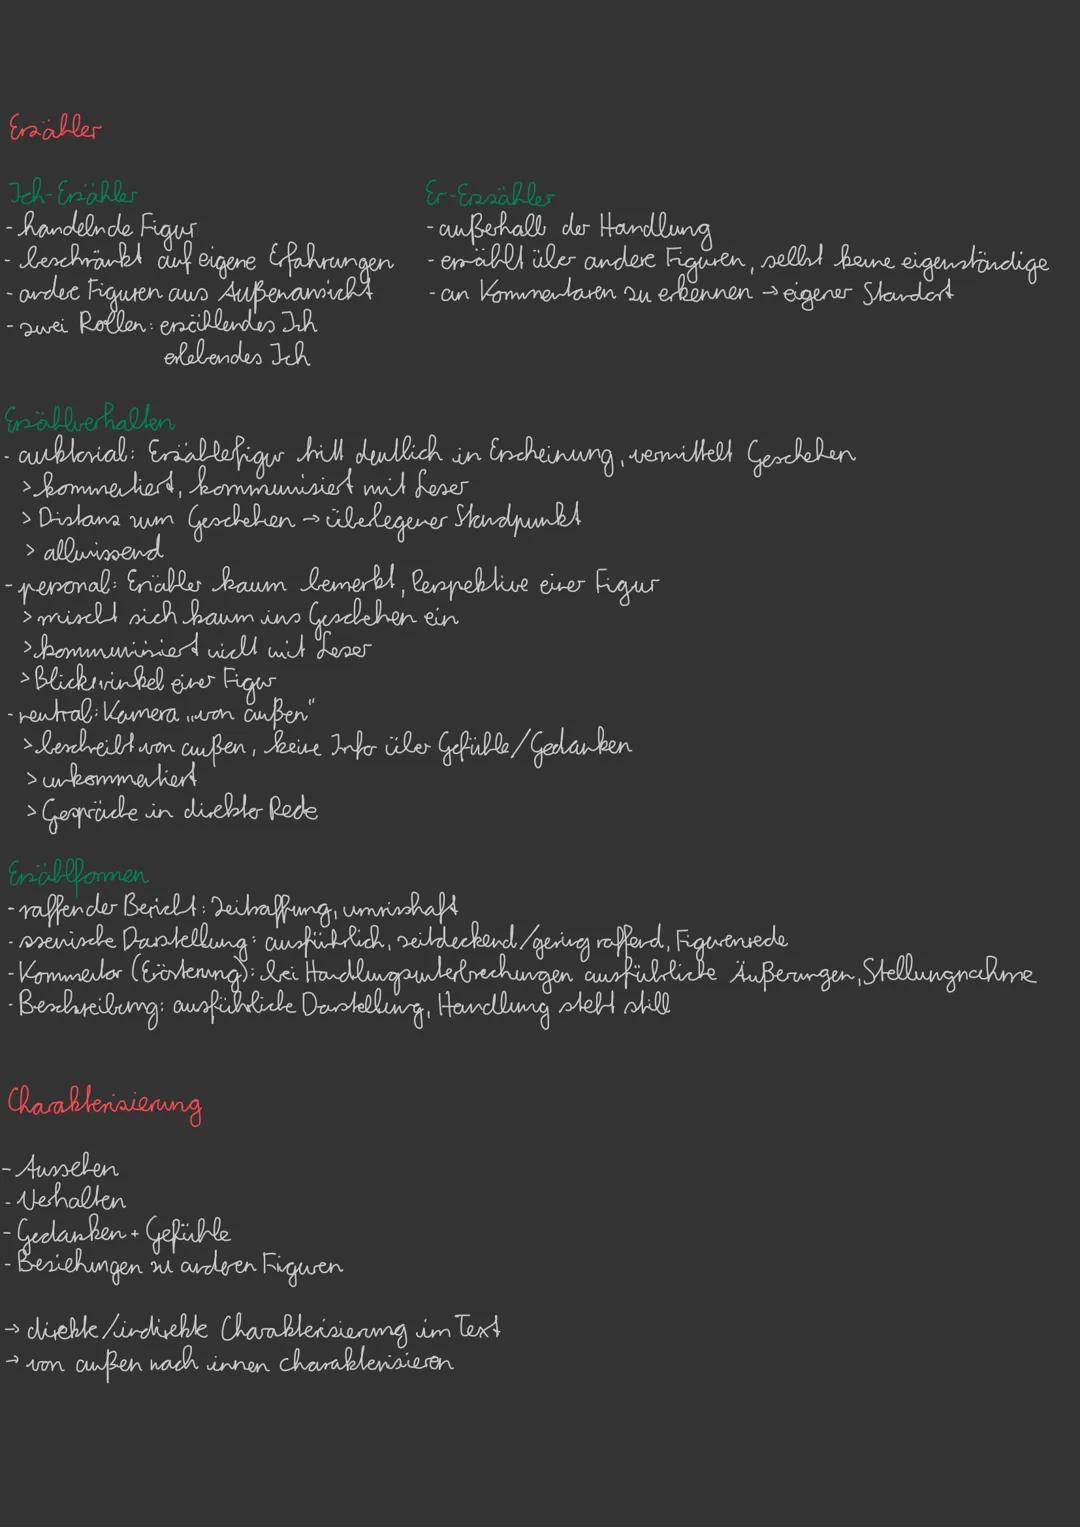 Erzähler
Ich-Erzähler
- handelnde Figur
- beschränkt auf eigene Erfahrungen
- andere Figuren aus Außenansicht
- zwei Rollen: erzählendes Ich
erlebendes Ich
Er-Erzähler
- außerhalb der Handlung
- erzählt über andere Figuren, selbst keine eigenständige
- an Kommentaren zu erkennen → eigener Standort
Erzählverhalten
- auktorial: Erzählefigur tritt deutlich in Erscheinung, vermittelt Geschehen
> kommentiert, kommunisiert mit Leser
> Distanz zum Geschehen → überlegener Standpunkt
> allwissend
- personal: Erzähler kaum bemerkt, Perspektive einer Figur
> mischt sich kaum ins Geschehen ein
> kommuniziert nicht mit Leser
> Blickwinkel einer Figur
- neutral: Kamera „von außen"
> beschreibt von außen, keine Info über Gefühle/Gedanken
> unkommentiert
> Gespräche in direkter Rede
Erzählformen
- raffender Bericht: Zeitraffung, umrisshaft
- szenische Darstellung: ausführlich, zeitdeckend/gering raffend, Figurenrede
- Kommentar (Erörterung): bei Handlungsunterbrechungen ausführliche Äußerungen, Stellungnahme
- Beschreibung: ausführliche Darstellung, Handlung steht still
Charakterisierung
- Aussehen
- Verhalten
- Gedanken + Gefühle
- Beziehungen zu anderen Figuren
→ direkte/indirekte Charakterisierung im Text
→ von außen nach innen charakterisieren